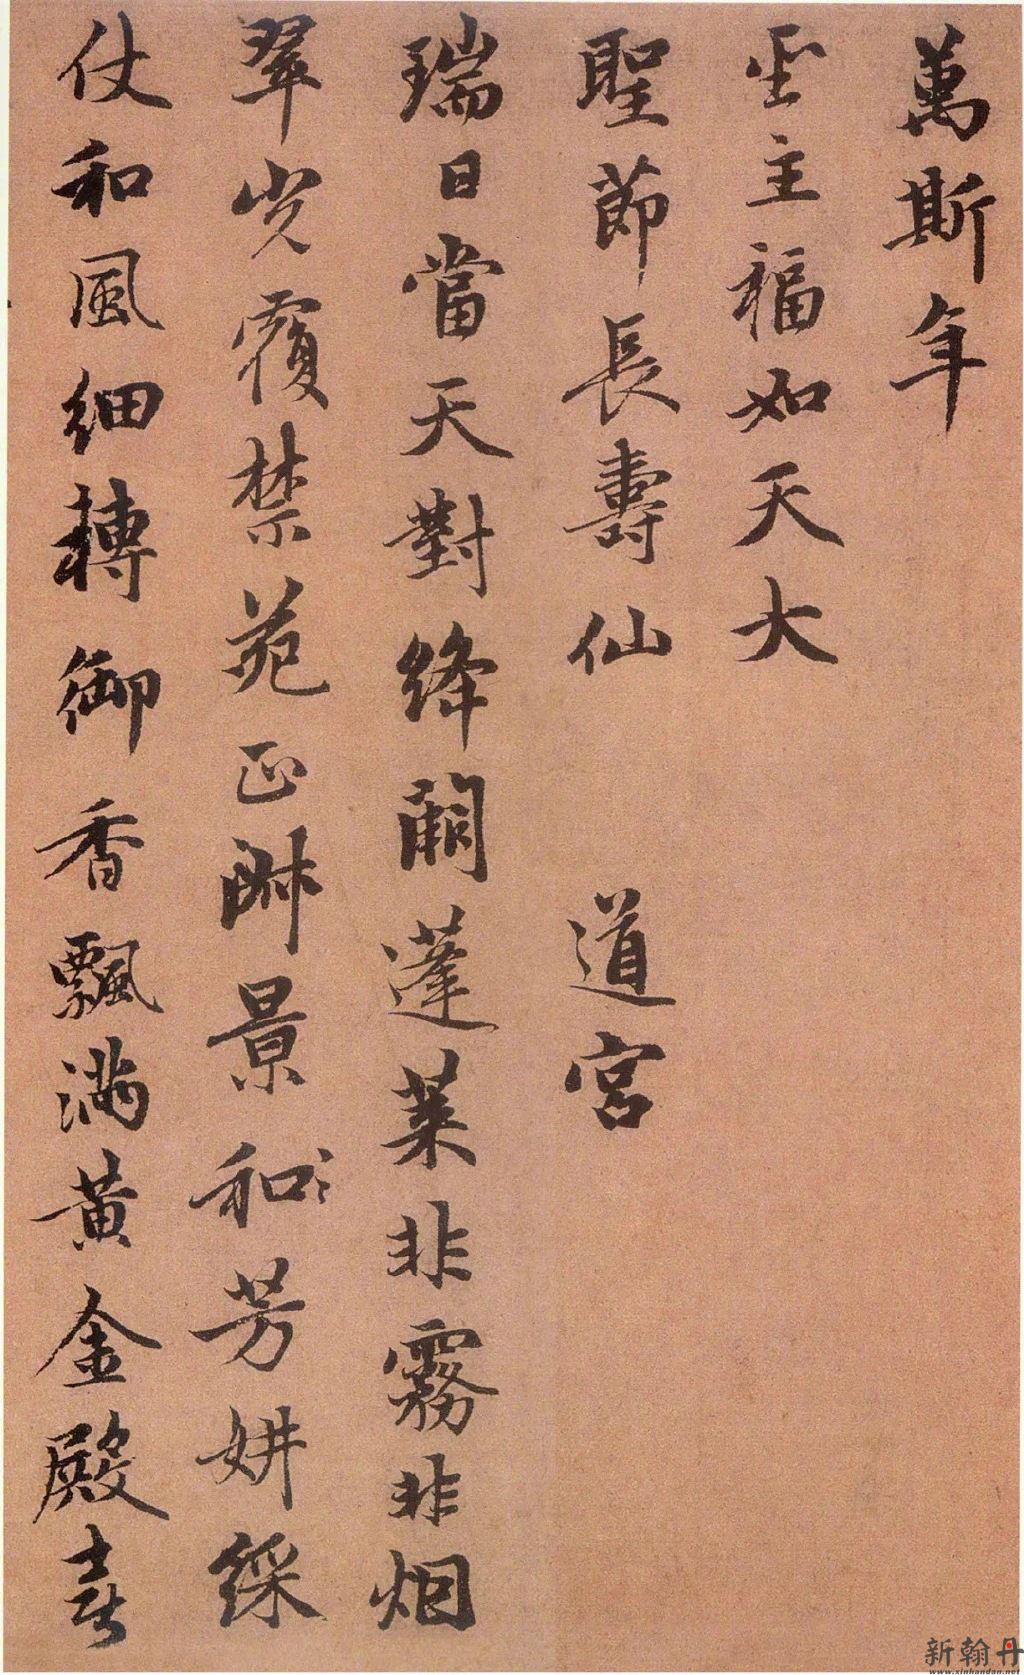 萬斯年
聖主福如天大
聖節長壽仙 道宮
瑞日當天對絳闕蓬萊非霧非烟
翠光覆禁苑正淑景和芳妍綵
仗和風細轉御香飄滿黄金殿喜
新翰丹
www.xinhandan.net